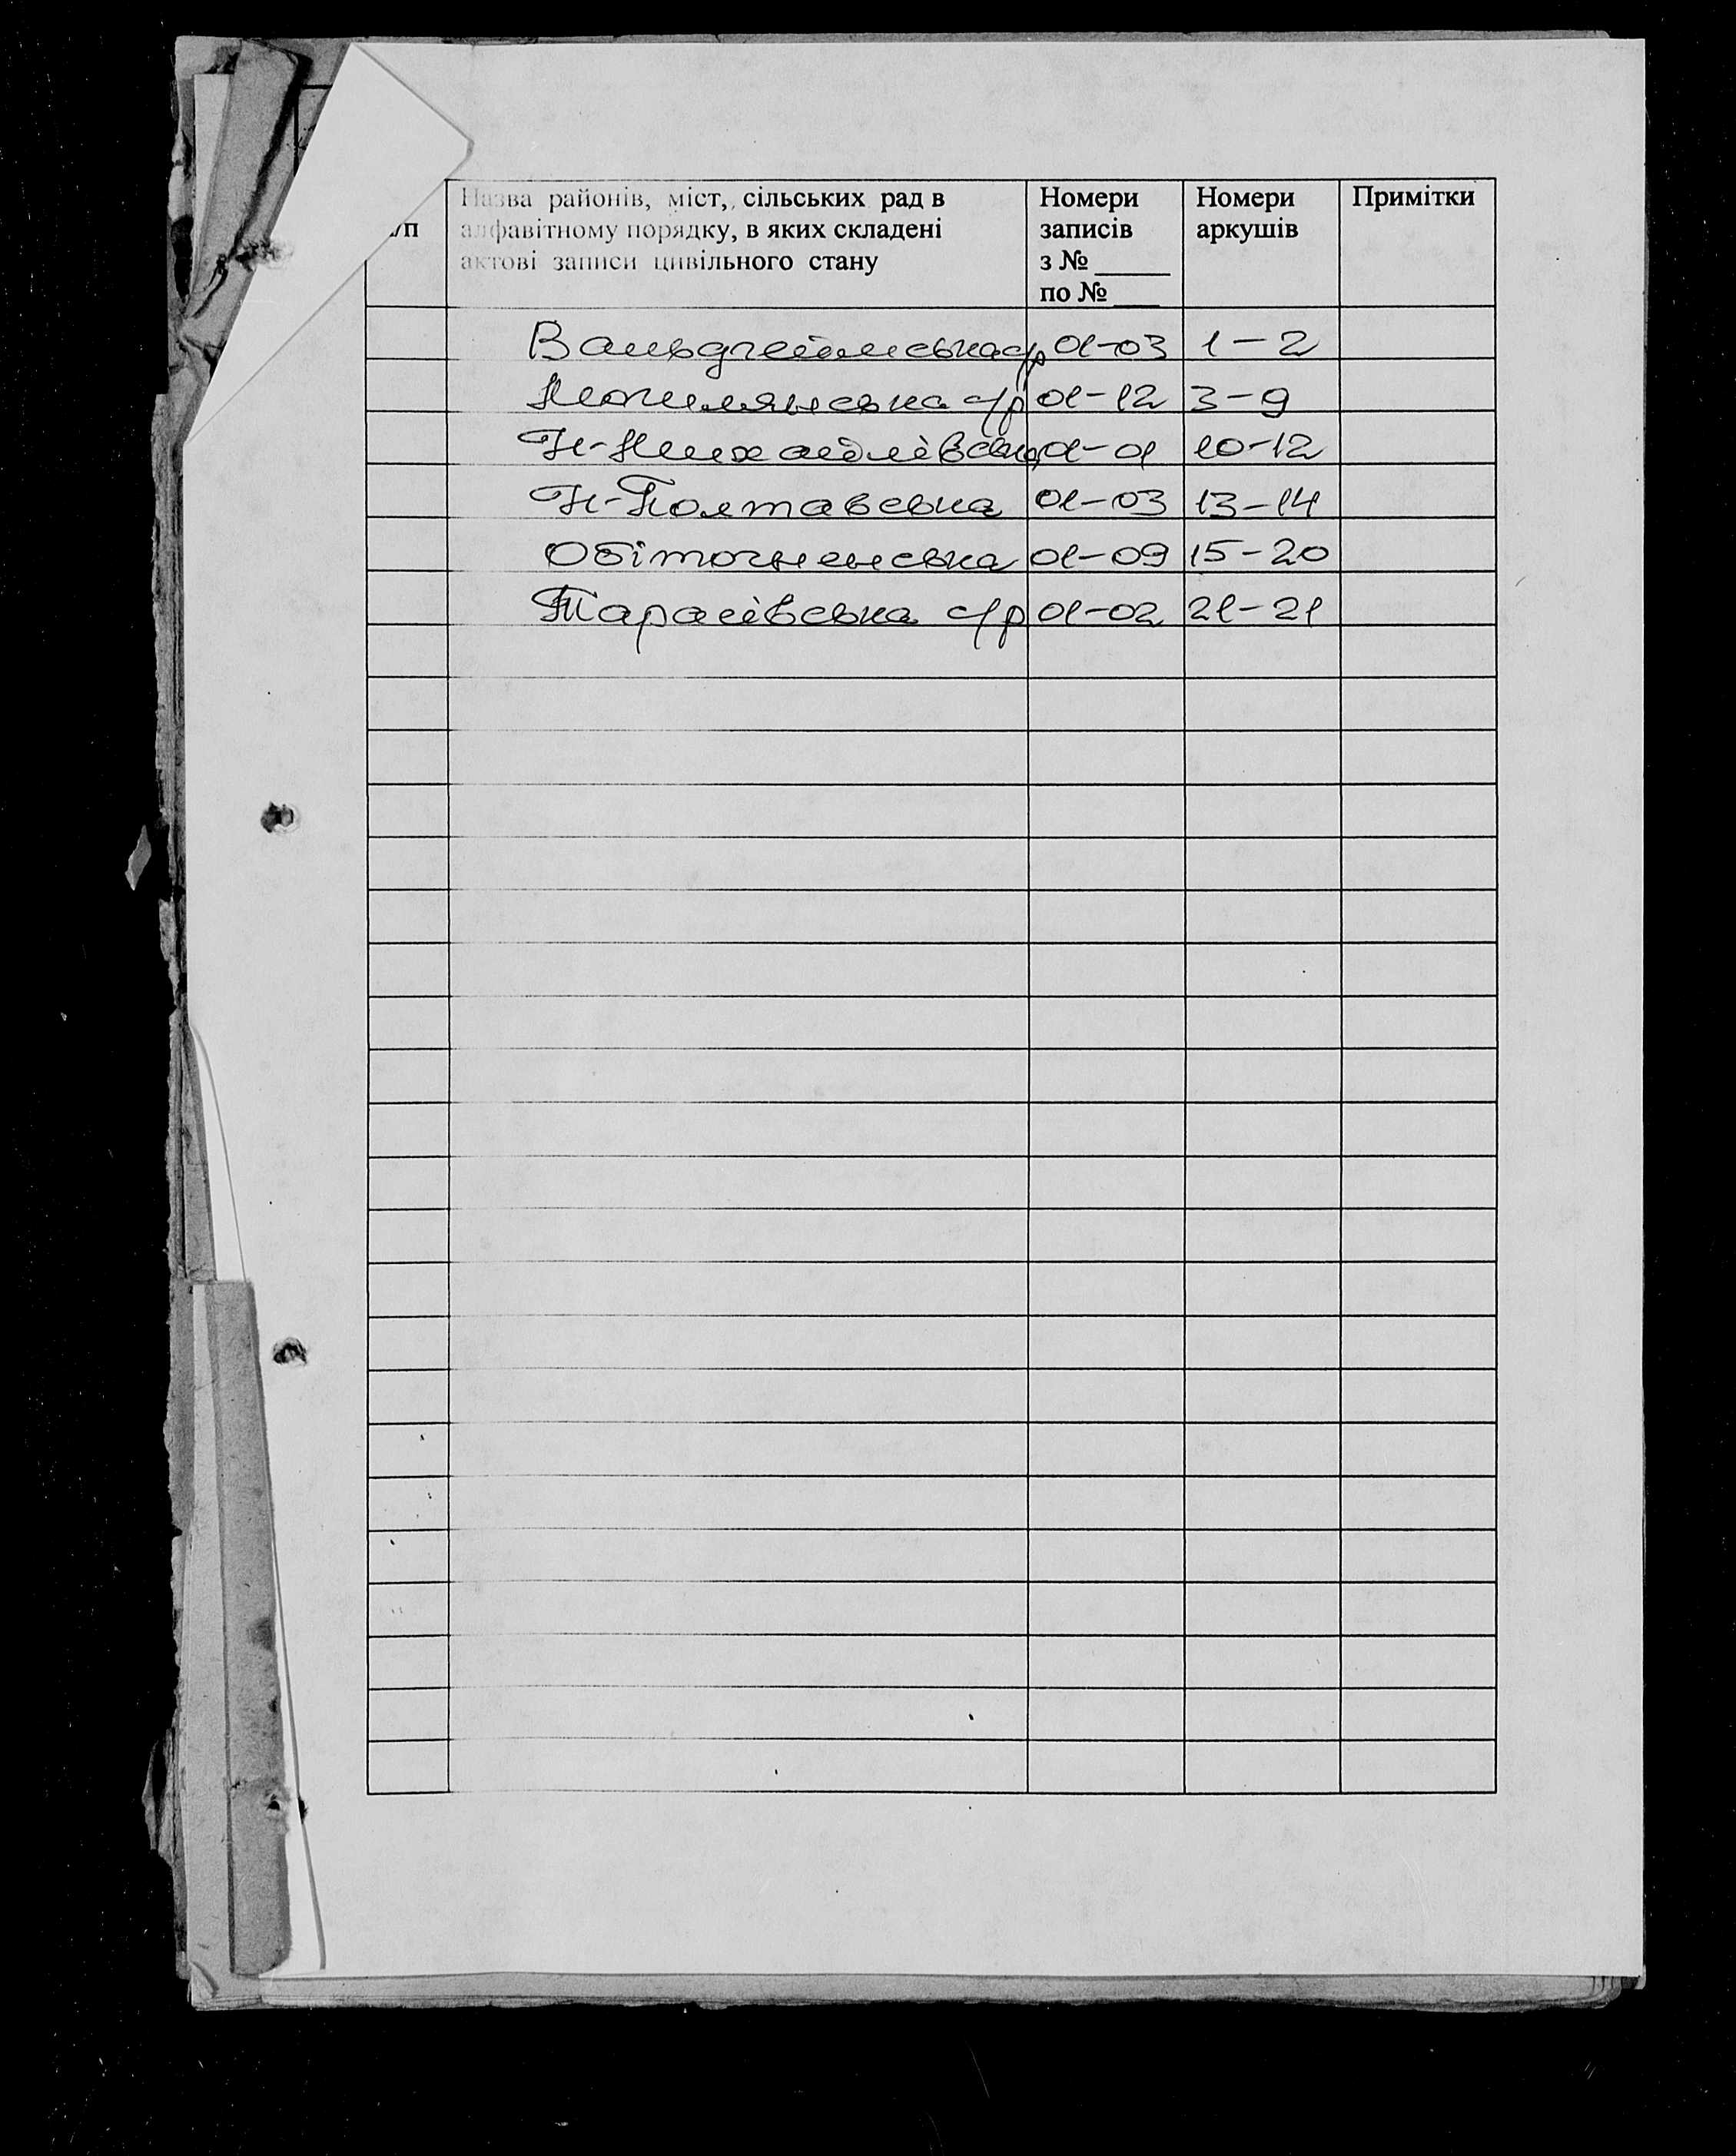 /п
Назва районів, міст, сільських рад в
алфавітному порядку, в яких складені
актові записи цивільного стану
Номери
записів
з № _____
по № ___
Номери
аркушів
Примітки
Вальдгеймська с/р 01-03 1-2
с/р 01-12 3-9
Н-Михайлівська 01-01 10-12
Н-Полтавська 01-03 13-14
Обіточненська 01-09 15-20
Тарасівська с/р 01-02 21-21